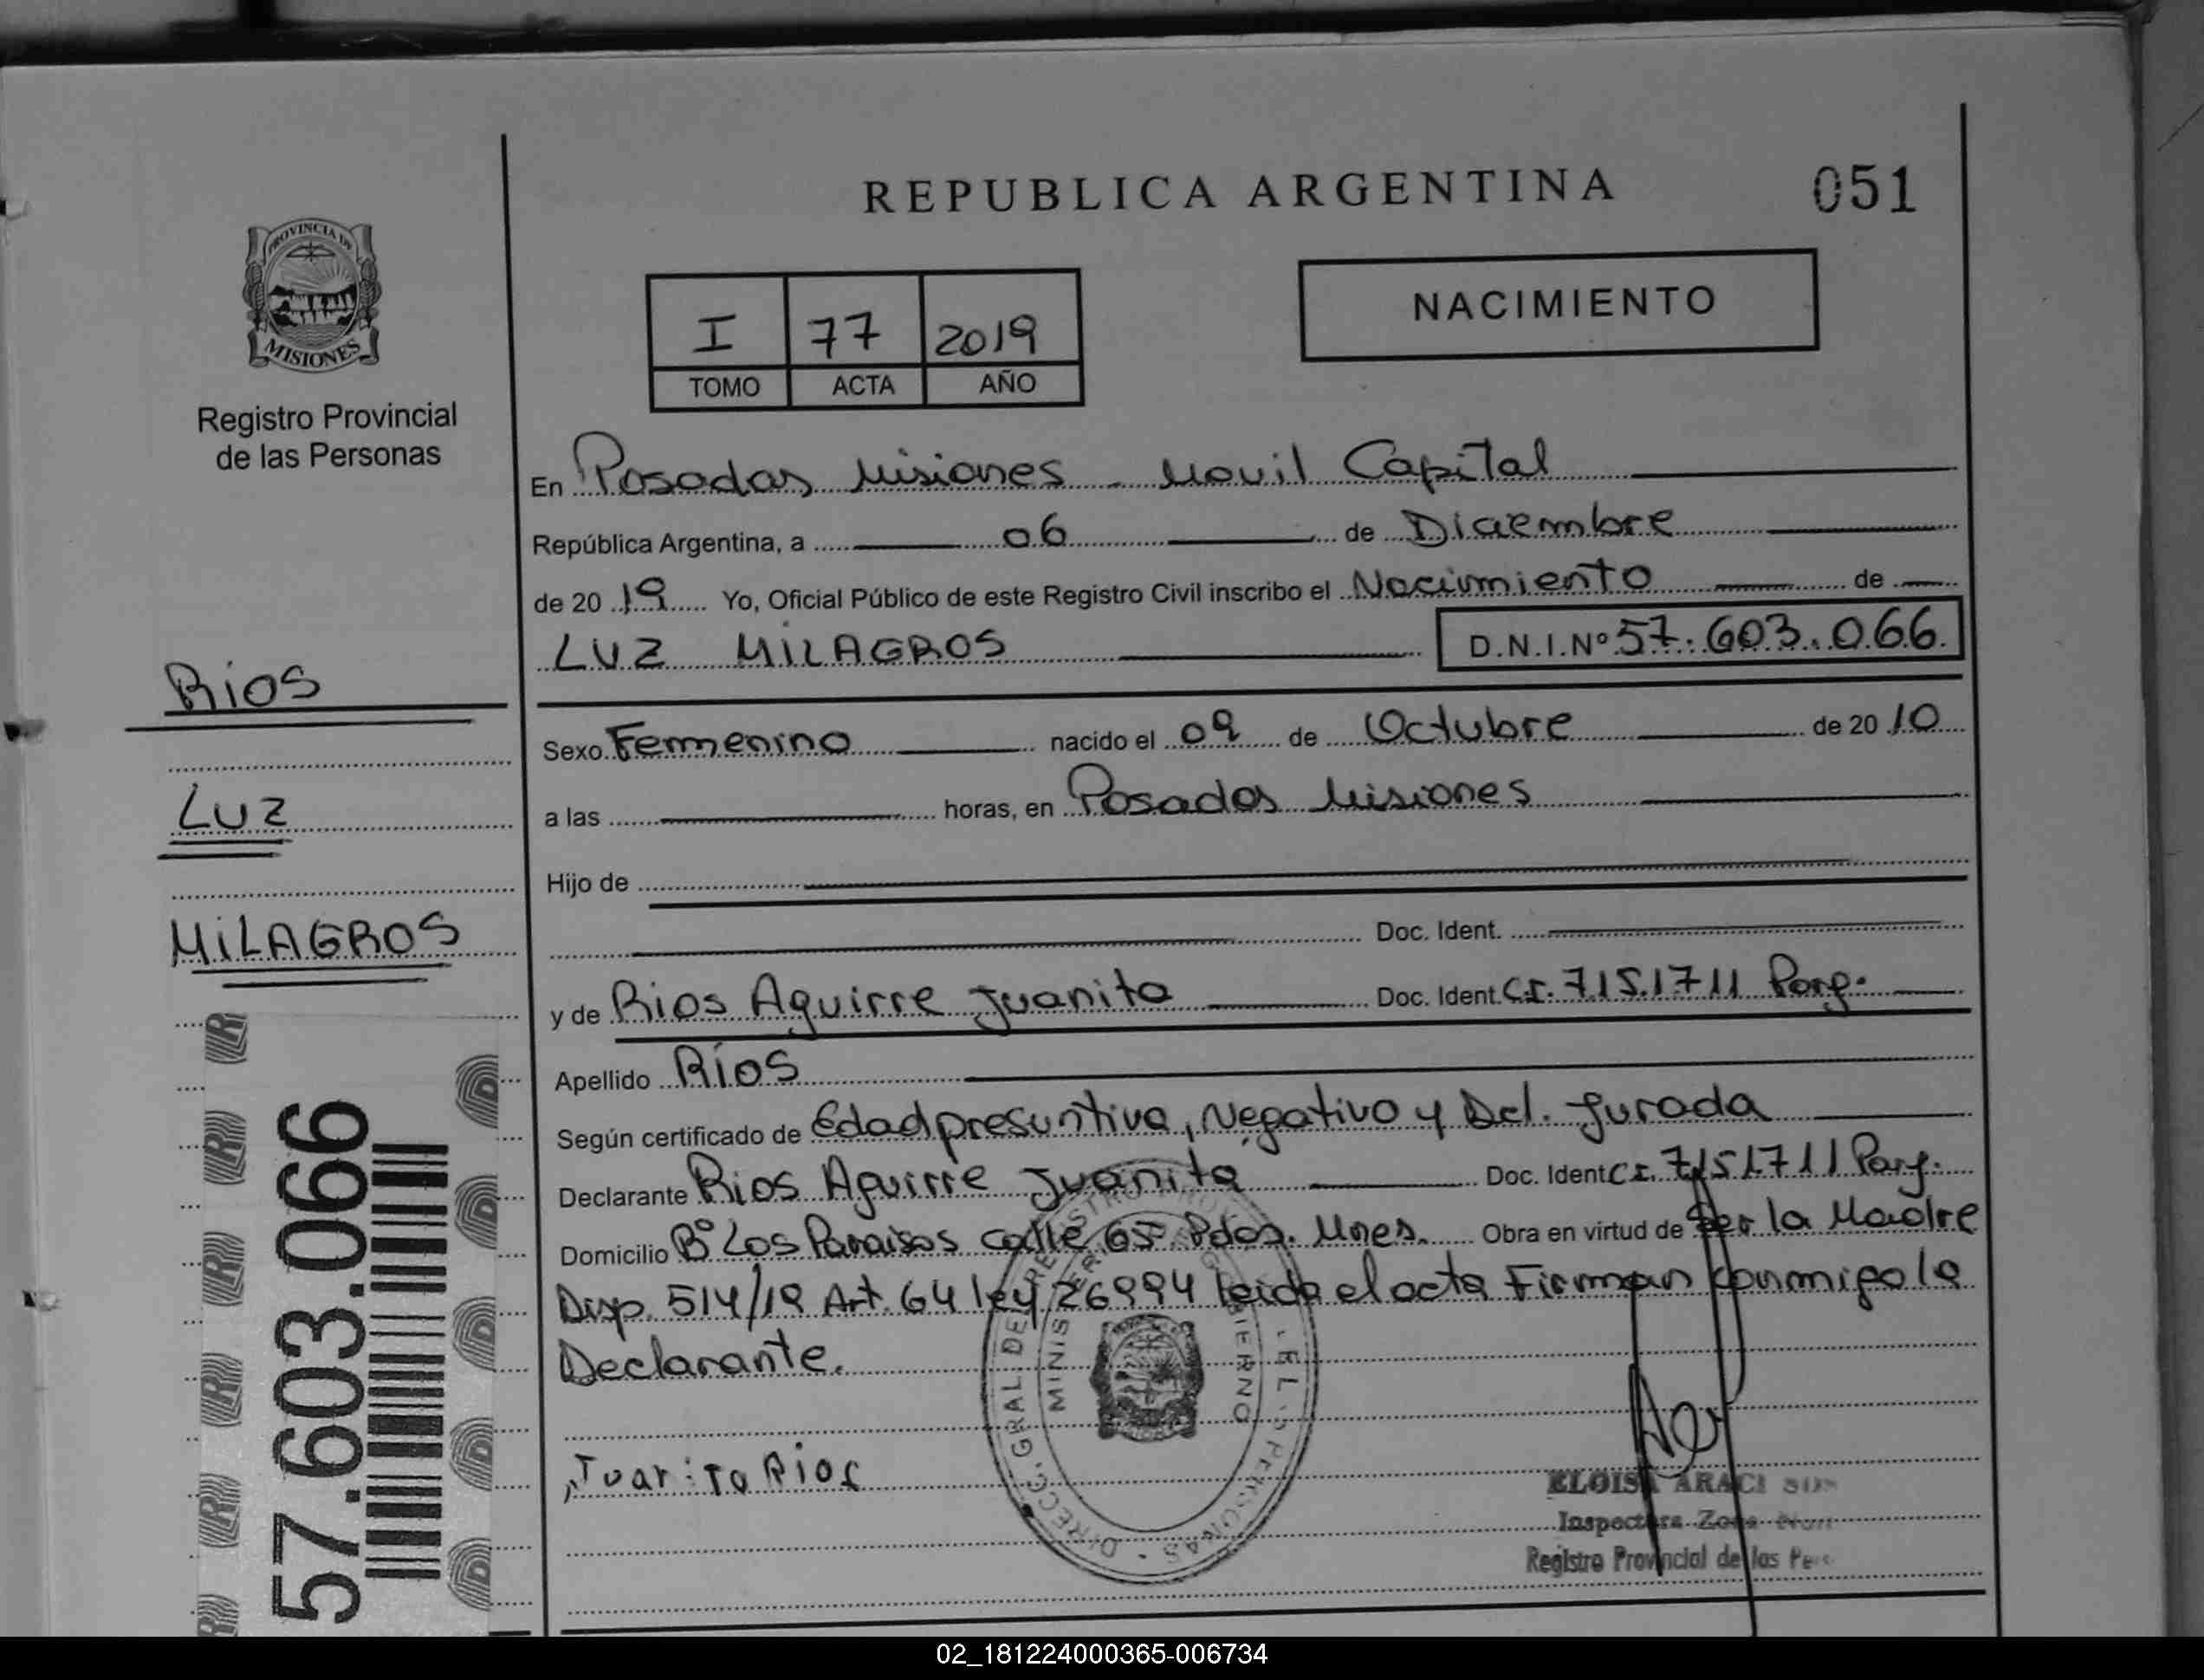 REPUBLICA ARGENTINA
051
PROVINCIA DE
MISIONES
Registro Provincial
de las Personas
I 77 2019
TOMO ACTA AÑO
NACIMIENTO
En Posadas Misiones - Movil Capital
República Argentina, a 06 de Diciembre
de 20 19 Yo, Oficial Público de este Registro Civil inscribo el Nacimiento de
LUZ MILAGROS
D.N.I.Nº 57.603.066.
Rios
LUZ
MILAGROS
Sexo Femenino nacido el 09 de Octubre de 20 10
a las horas, en Posadas Misiones
Hijo de
Doc. Ident.
y de Rios Aguirre Juanita Doc. Ident. C.I. 7151711 Parg.
Apellido Ríos
Según certificado de Edad presuntiva, Negativo y Del. Jurada
Declarante Rios Aguirre Juanita Doc. Ident C.I. 7151711 Parg.
Domicilio Bº Los Paraisos calle 65 Pdas. Mnes. Obra en virtud de Ser la Madre
Disp. 514/19 Art. 64 ley 26994 leida el acta Firman conmigo la
Declarante.
Juanita Rios
57.603.066
DIRECC. GRAL. DE
MINIS
ELOISA ARACI
Inspectora Zona
Registro Provincial de las
02_181224000365-006734